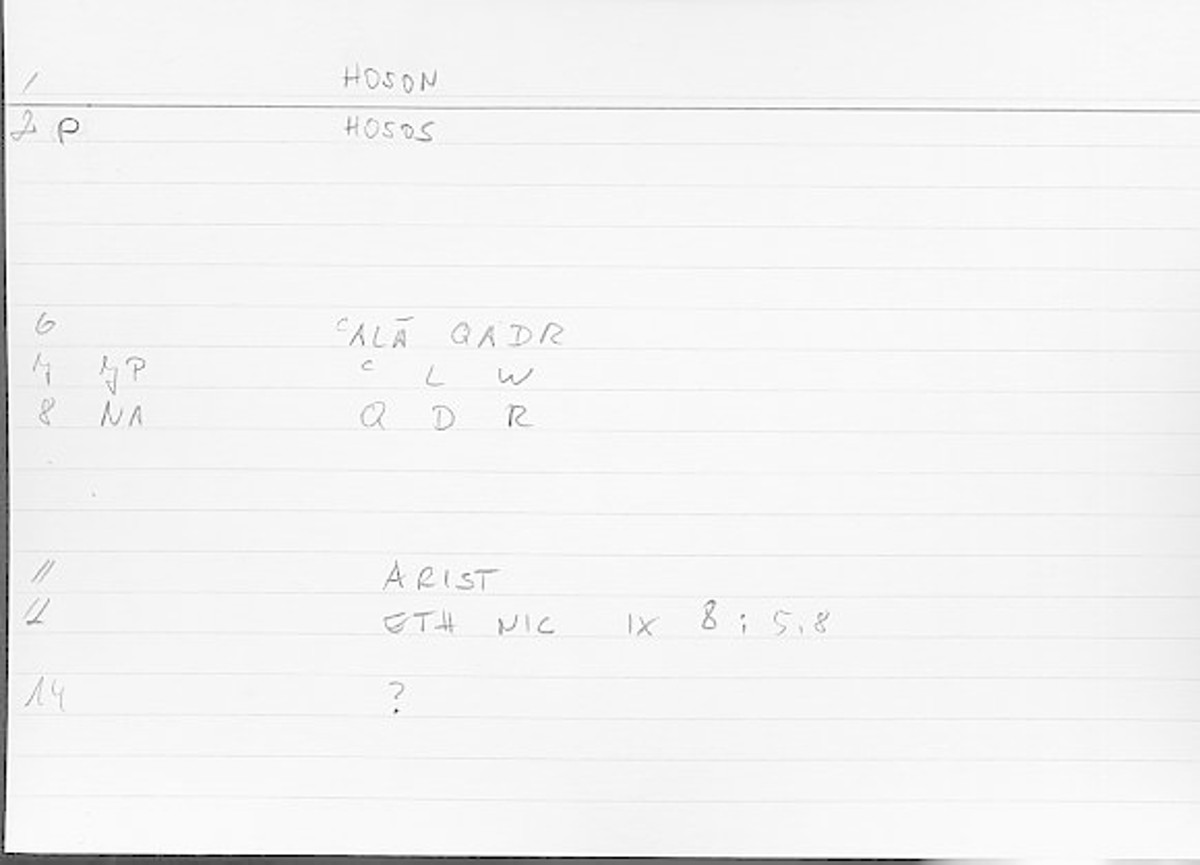 1 HOSON
2 P HOSOS
6 ʿALĀ QADR
7 YP ʿ L W
8 NA Q D R
11 ARIST
12 ETH NIC IX 8 ; 5.8
14 ?